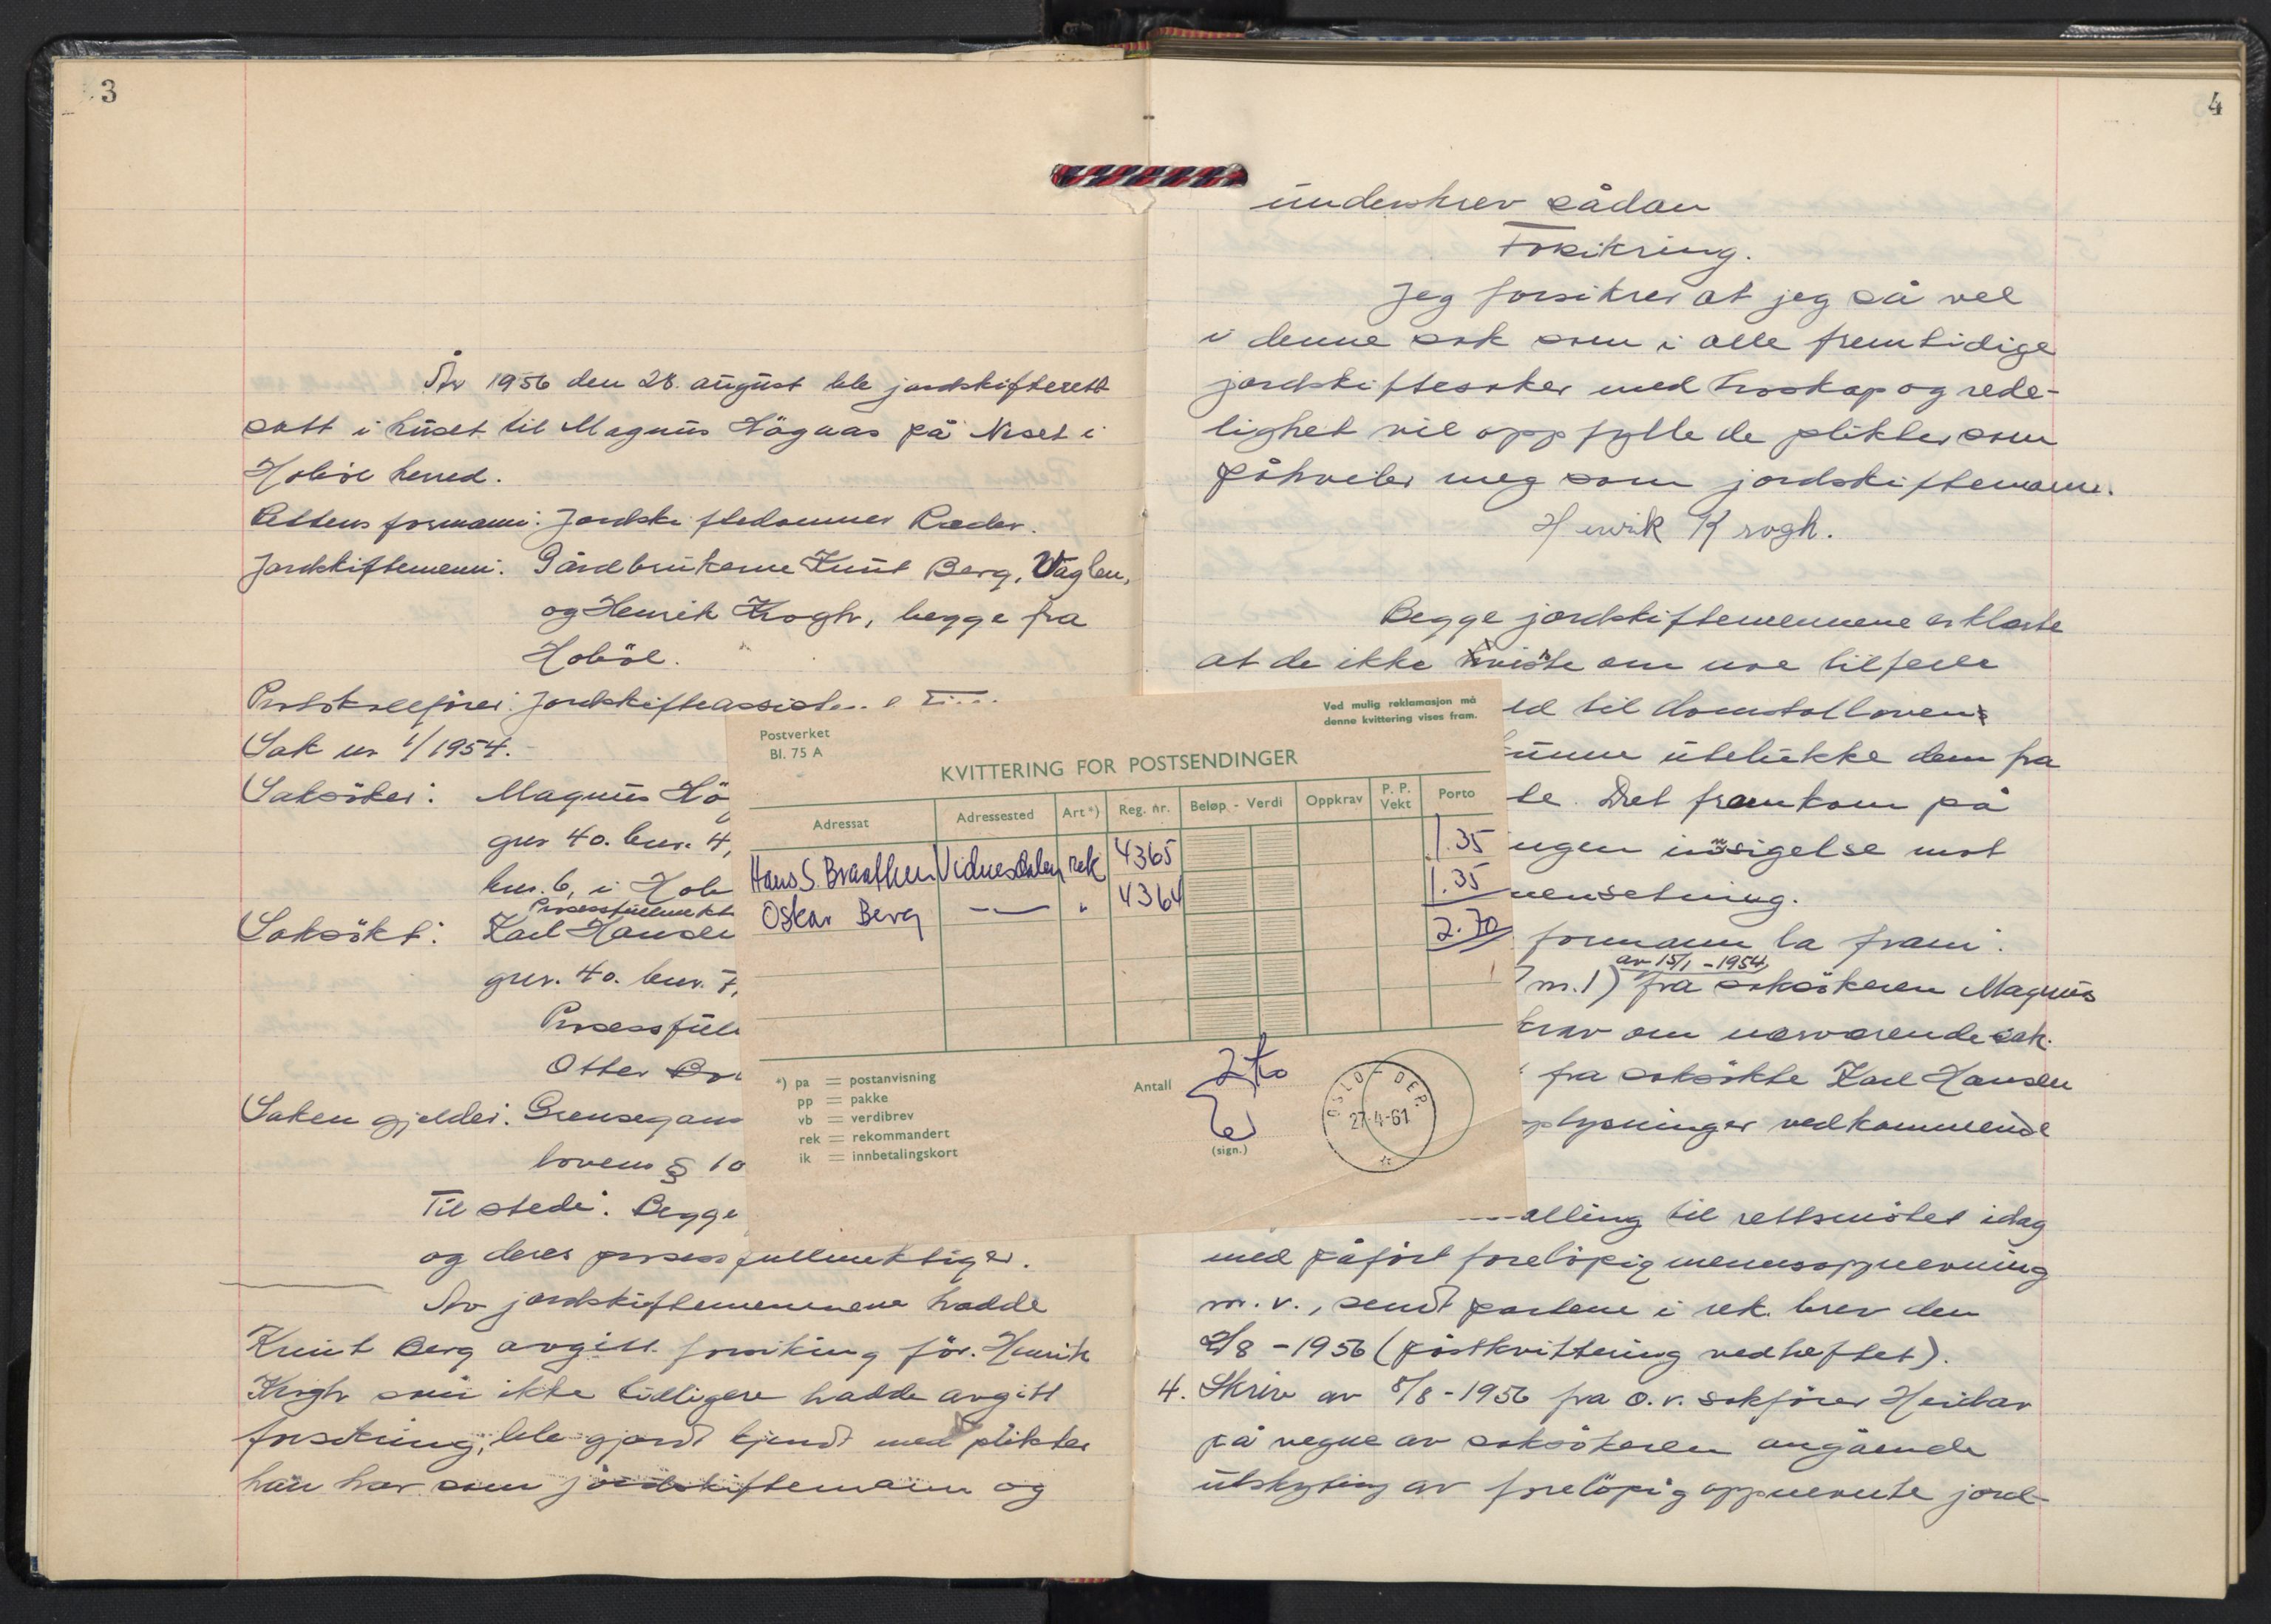 3
År 1956 den 28. august ble jordskifterett
satt i huset til Magnus Högaas på Neset i
Hobøl herred.
Rettens formann: Jordskiftedommer Ræder.
Jordskiftemenn: Gårdbrukerne Knut Berg, Vaglen,
og Henrik Krogh, begge fra
Hobøl.
Protokollfører: Jordskifteassistent
Sak nr 1/1954.
Saksøker: Magnus Hög
gnr 40. bnr. 4,
bnr. 6, i Hob
Prosessfullmekt
Saksøkt: Karl Hansen
gnr. 40. bnr. 7,
Prosessfull
Otter
Saken gjelder: Grensegang
lovens § 10
Til stede: Begge
og deres prosessfullmektiger.
Av jordskiftemennene hadde
Knut Berg avgitt forsikring før. Henrik
Krogh som ikke tidligere hadde avgitt
forsikring, ble gjort kjendt med plikter
han har som jordskiftemann og
Postverket
Bl. 75 A
Ved mulig reklamasjon må
denne kvittering vises fram.
KVITTERING FOR POSTSENDINGER
Adressat Adressested Art*) Reg. nr. Beløp - Verdi Oppkrav P. P. Vekt Porto
Hans S. Braathen Vidnesdalen rek 4365 1.35
Oskar Berg — " 4364 1.35
2.70
*) pa = postanvisning
pp = pakke
vb = verdibrev
rek = rekommandert
ik = innbetalingskort
Antall 2 to
(sign.)
OSLO - DEP.
27-4-61
4
underskrev sådan
Forsikring.
Jeg forsikrer at jeg så vel
i denne sak som i alle fremtidige
jordskiftesaker med troskap og rede-
lighet vil oppfylle de plikter som
påhviler meg som jordskiftemann.
Henrik Krogh.
Begge jordskiftemennene erklærte
at de ikke visste om noe tilfelle
ld til domstolloven
kunne utelukke dem fra
te. Det framkom på
ingen innsigelse mot
mensetning.
formann la fram:
av 15/1 - 1954
m.1) fra saksøkeren Magnus
krav om nærværende sak.
fra saksøkte Karl Hansen
opplysninger vedkommende
alling til rettsmøtet idag
med påført foreløpig mennsoppnevning
m. v., sendt partene i rek. brev den
2/8 - 1956 (postkvittering vedheftet).
4. Skriv av 8/8 - 1956 fra o.r. sakfører Heidar
på vegne av saksøkeren angående
utskyting av foreløpig oppnevnte jord-